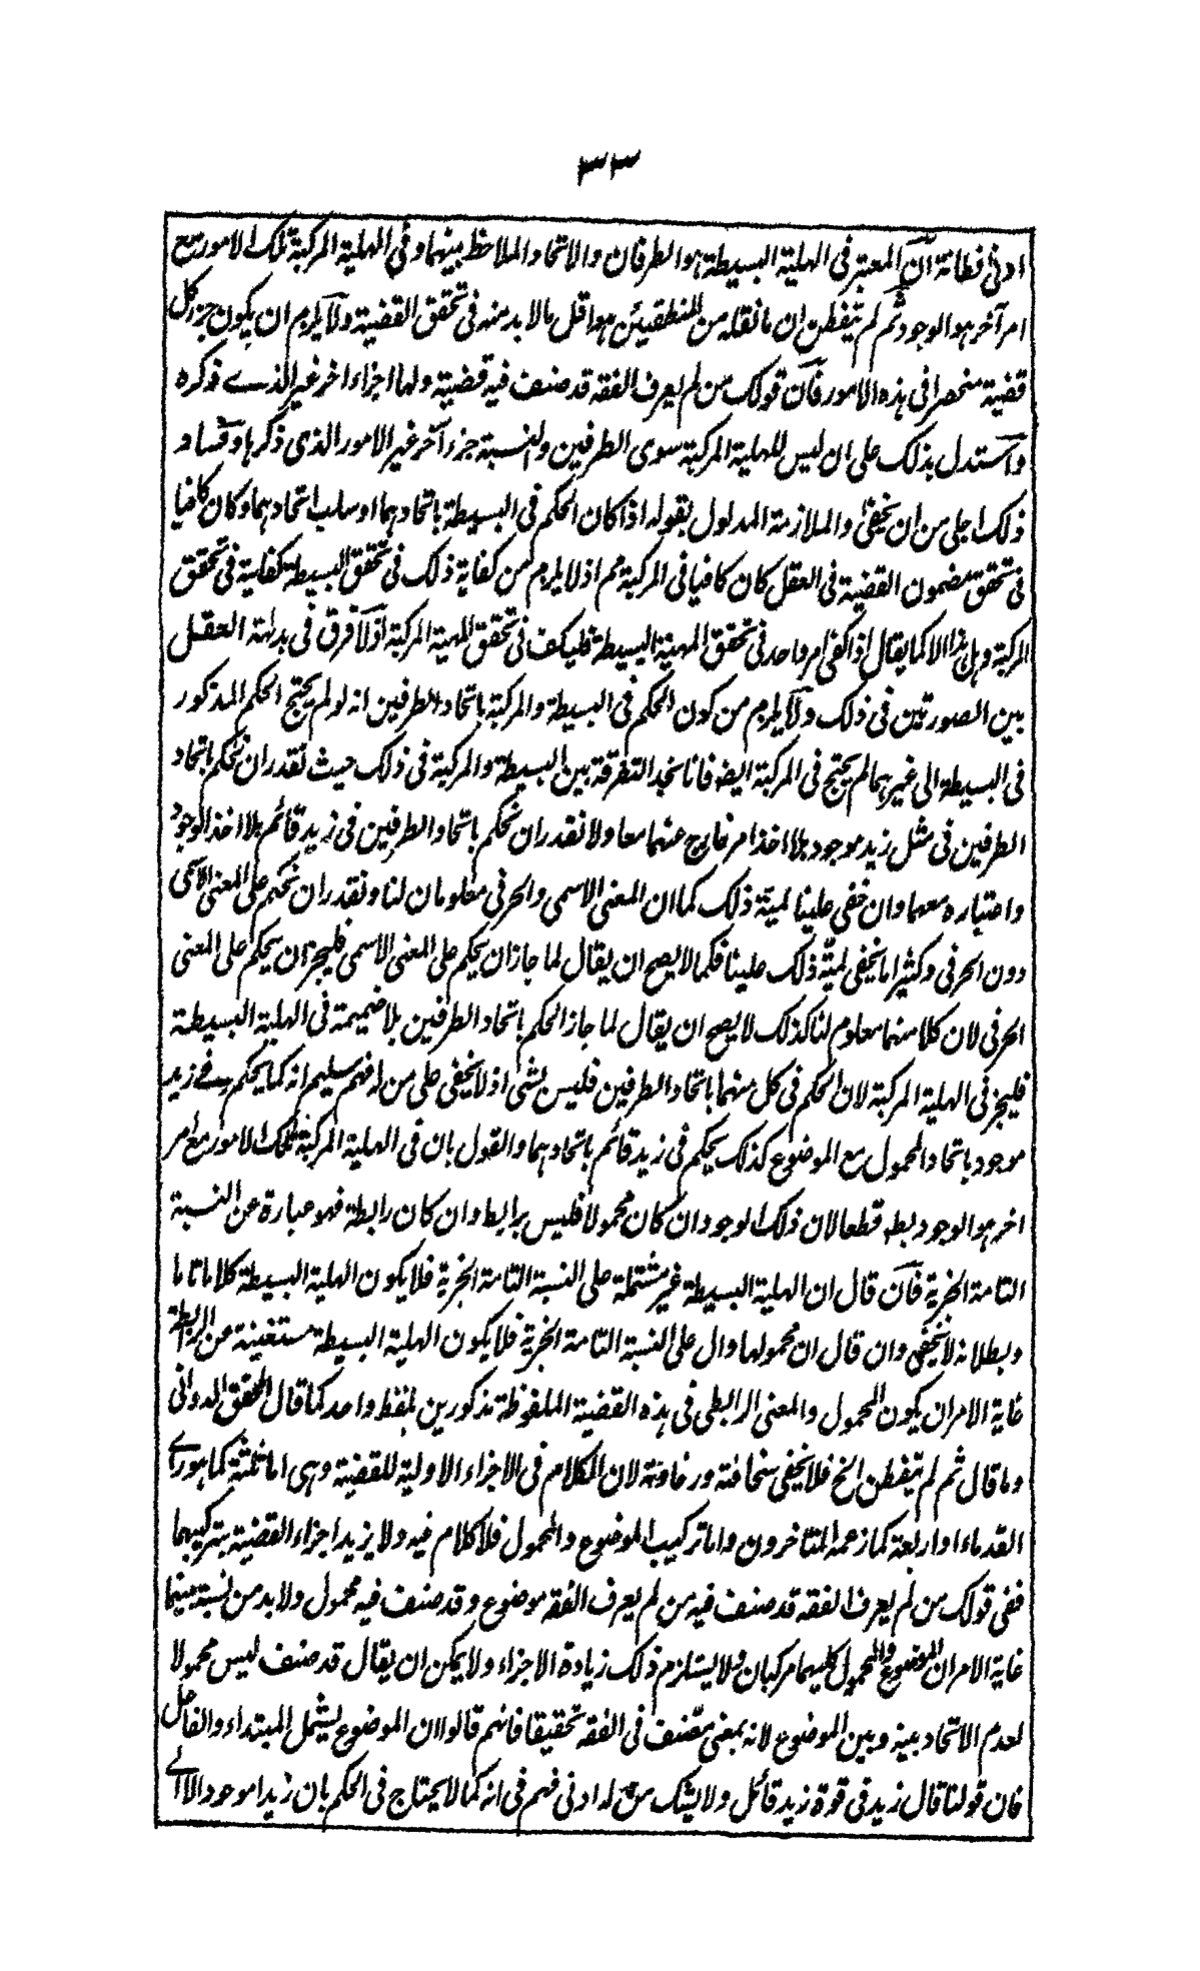 ٣٣
ادنى فطانة ان المعتبر فى الهلية البسيطة هو الطرفان والاتحاد الملاحظ بينهما وفى الهلية المركبة تلك الامور مع
امر آخر هو الوجود ثم لم يتفطن ان ما نقله من المنطقيين هو اقل ما لا بد منه فى تحقق القضية ولا يلزم ان يكون جزء كل
قضية منحصرا فى هذه الامور فان قولك من لم يعرف الفقه قد صنف فيه قضية ولها اجزاء اخر غير الذى ذكره
واستدل بذلك على ان ليس للهلية المركبة سوى الطرفين والنسبة جزء آخر غير الامور الذى ذكرها وفساد
ذلك اجلى من ان يخفى والملازمة المدلول بقوله اذا كان الحكم فى البسيطة باتحادهما او سلب اتحادهما وكان كافيا
فى تحقق مضمون القضية فى العقل كان كافيا فى المركبة مم اذ لا يلزم من كفاية ذلك فى تحقق البسيطة كفايته فى تحقق
المركبة وهل هذا الا كما يقال اذا كفى امر واحد فى تحقق المهية البسيطة فليكف فى تحقق المهية المركبة اذ لا فرق فى بداهة العقل
بين الصورتين فى ذلك ولا يلزم من كون الحكم فى البسيطة والمركبة باتحاد الطرفين انه لو لم يحتج الحكم المذكور
فى البسيطة الى غيرهما لم يحتج فى المركبة ايضا فانا نجد التفرقة بين البسيطة والمركبة فى ذلك حيث نقدر ان نحكم باتحاد
الطرفين فى مثل زيد موجود بلا اخذ امر خارج عنهما معا ولا نقدر ان نحكم باتحاد الطرفين فى زيد قائم بلا اخذ الوجود
واعتباره معهما وان خفى علينا لمية ذلك كما ان المعنى الاسمى والحرفى معلومان لنا ونقدر ان نحكم على المعنى الاسمى
دون الحرفى وكثيرا ما يخفى لمية ذلك علينا فكما لا يصح ان يقال لما جاز ان يحكم على المعنى الاسمى فليجز ان يحكم على المعنى
الحرفى لان كلا منهما معلوم لنا كذلك لا يصح ان يقال لما جاز الحكم باتحاد الطرفين بلا ضميمة فى الهلية البسيطة
فليجز فى الهلية المركبة لان الحكم فى كل منهما باتحاد الطرفين فليس بشئ اذ لا يخفى على من له فهم سليم انه كما يحكم فى زيد
موجود باتحاد المحمول مع الموضوع كذلك يحكم فى زيد قائم باتحادهما والقول بان فى الهلية المركبة تلك الامور مع امر
اخر هو الوجود بط قطعا لان ذلك الوجود ان كان محمولا فليس برابط وان كان رابطة فهو عبارة عن النسبة
التامة الخبرية فان قال ان الهلية البسيطة غير مشتملة على النسبة التامة الخبرية فلا يكون الهلية البسيطة كلاما تاما
وبطلانه لا يخفى وان قال ان محمولها دال على النسبة التامة الخبرية فلا يكون الهلية البسيطة مستغنية عن الرابطة
غاية الامر ان يكون المحمول والمعنى الرابطى فى هذه القضية الملفوظة مذكورين بلفظ واحد كما قال المحقق الدوانى
وما قال ثم لم يتفطن الخ فلا يخفى سخافته ورخاوته لان الكلام فى الاجزاء الاولية للقضية وهى اما ثلثة كما هو راى
القدماء او اربعة كما زعمه المتاخرون واما تركيب الموضوع والمحمول فلا كلام فيه ولا يزيد اجزاء القضية بتركيبهما
ففى قولك من لم يعرف الفقه قد صنف فيه من لم يعرف الفقه موضوع وقد صنف فيه محمول ولا بد من نسبة بينهما
غاية الامر ان الموضوع والمحمول كليهما مركبان ولا يستلزم ذلك زيادة الاجزاء ولا يمكن ان يقال قد صنف ليس محمولا
لعدم الاتحاد بينه وبين الموضوع لانه بمعنى مصنف فى الفقه تحقيقا فانهم قالوا ان الموضوع يشمل المبتداء والفاعل
فان قولنا قال زيد فى قوة زيد قائل ولا يشك من له ادنى فهم فى انه كما لا يحتاج فى الحكم بان زيدا موجود الا الى